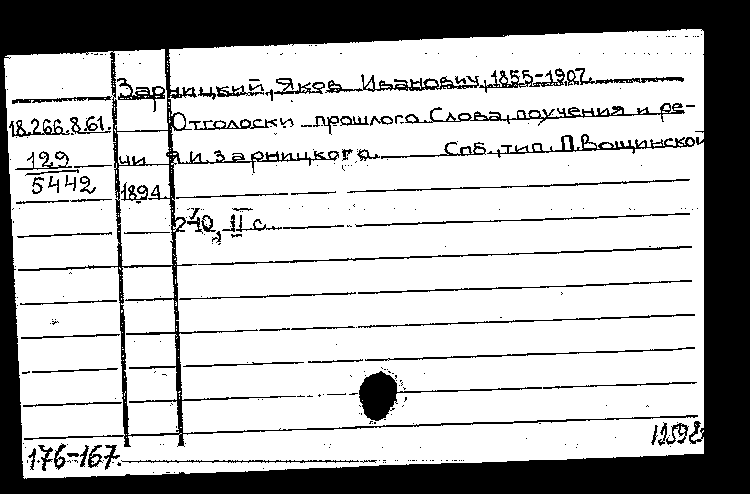 Зарницкий, Яков Иванович, 1855-1907.
18.266.8.61. Отголоски прошлого. Слова, поучения и ре-
129 чи Я.И. Зарницкого. Спб., тип. П. Вощинской
5442 1894.
240, II с.
176-167.